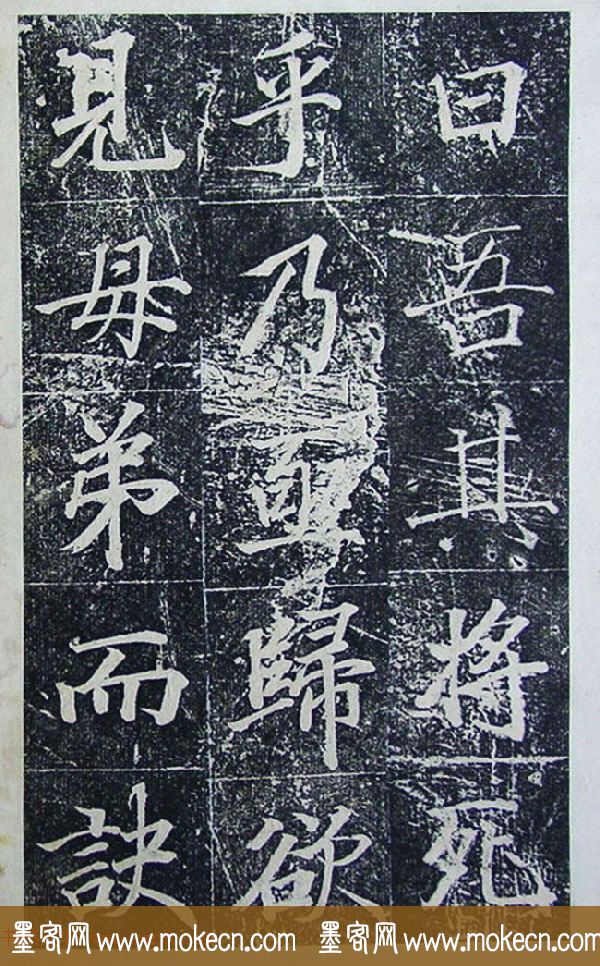 曰吾其将死
乎乃亟歸欲
見母弟而訣
墨客网 www.mokecn.com 墨客网 www.mokecn.com